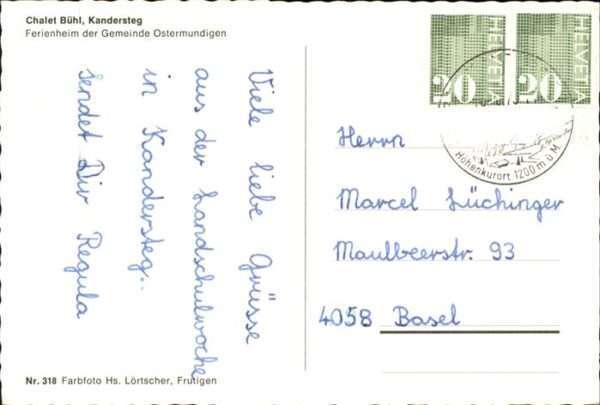 Chalet Bühl, Kandersteg
Ferienheim der Gemeinde Ostermundigen
Viele liebe Grüsse
aus der Landschulwoche
in Kandersteg..
sendet Dir Regula
HELVETIA
20
HELVETIA
20
Höhenkurort 1200 m ü M
Herrn
Marcel Lüchinger
Maulbeerstr. 93
4058 Basel
Nr. 318 Farbfoto Hs. Lörtscher, Frutigen